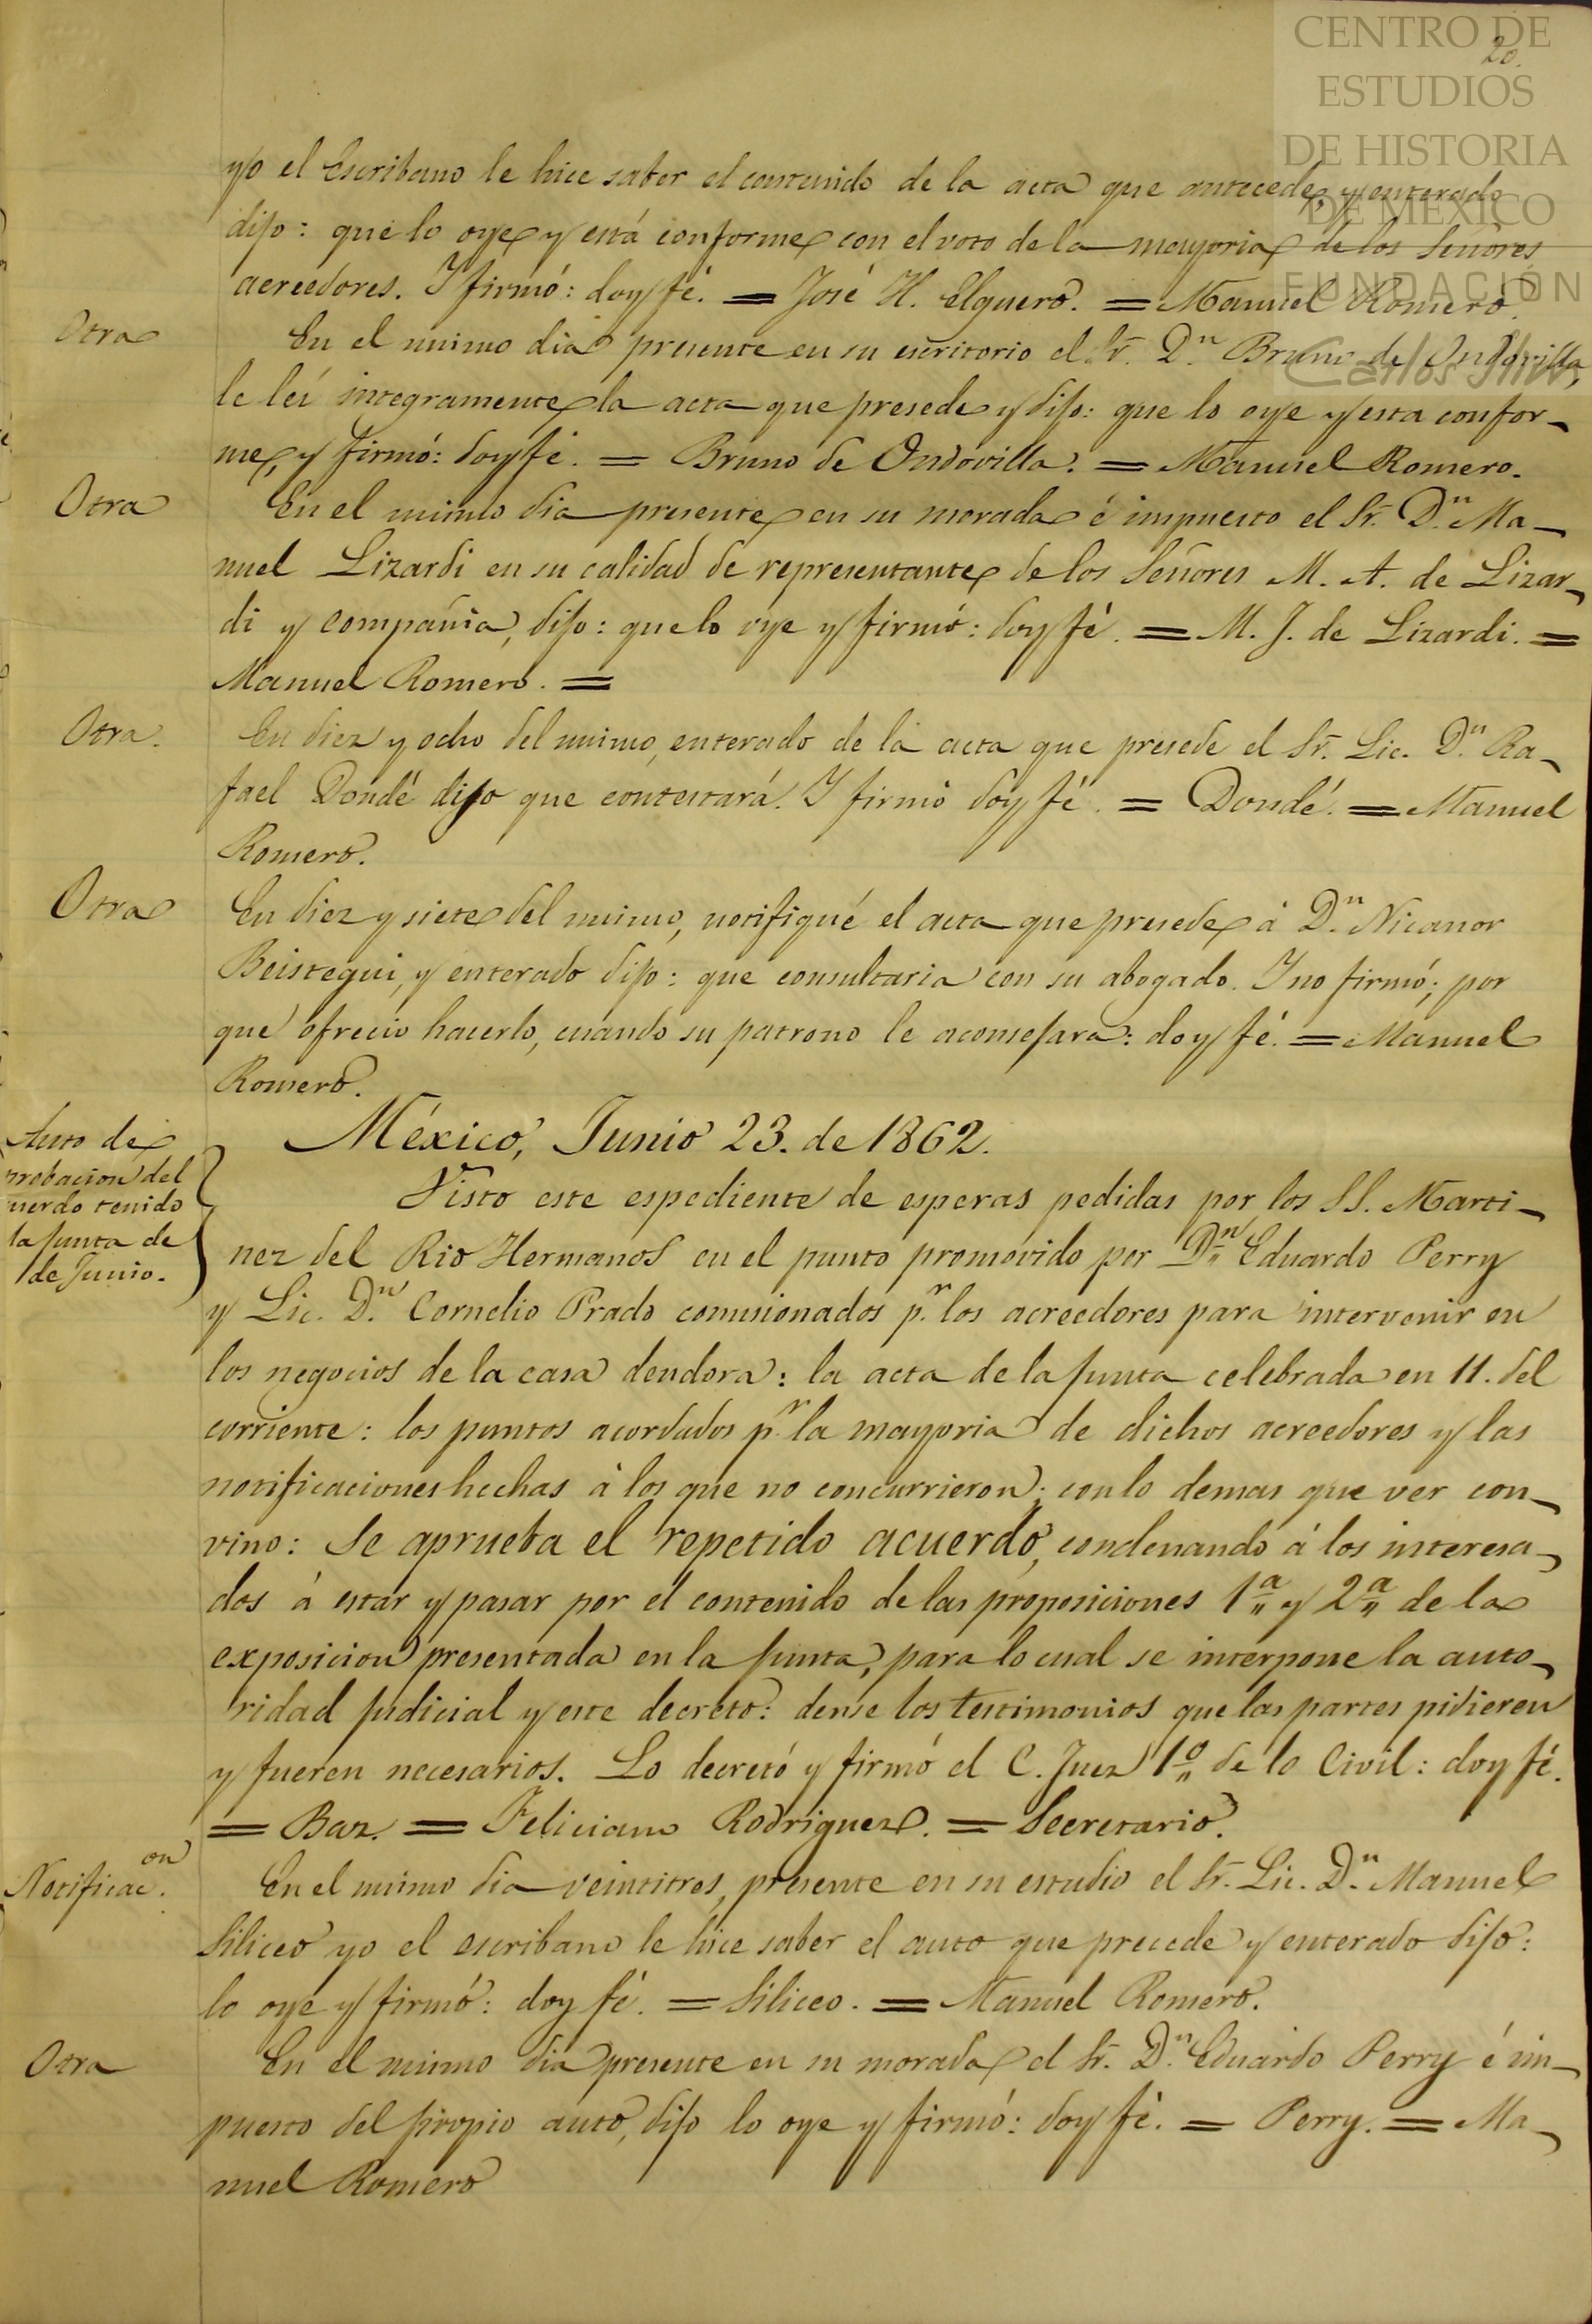 20.
CENTRO DE
ESTUDIOS
DE HISTORIA
DE MEXICO
FUNDACIÓN
Carlos Slim
yo el Escribano le hice saber el contenido de la acta que antecede, y enterado
dijo: que lo oye y está conforme con el voto de la mayoria de los Señores
acreedores. Y firmó: doy fé. = José H. Elguero. = Manuel Romero.
Otra
En el mismo dia presente en su escritorio el Sr. Dn. Bruno de Ondovilla,
le leí integramente la acta que presede y dijo: que lo oye y esta confor-
me, y firmó: doy fé. = Bruno de Ondovilla. = Manuel Romero.
Otra
En el mismo dia presente en su morada é impuesto el Sr. Dn. Ma-
nuel Lizardi en su calidad de representante de los Señores M. A. de Lizar-
di y compañia, dijo: que lo oye y firmó: doy fé. = M. J. de Lizardi. =
Manuel Romero. =
Otra.
En diez y ocho del mismo, enterado de la acta que presede el Sr. Lic. Dn. Ra-
fael Dondé dijo que contestará. Y firmó doy fé. = Dondé. = Manuel
Romero.
Otra
En diez y siete del mismo, notifiqué el acta que presede á Dn. Nicanor
Beistegui, y enterado dijo: que consultaria con su abogado. Y no firmó; por
que ofrecio hacerlo, cuando su patrono le aconsejara: doy fé. = Manuel
Romero.
México, Junio 23. de 1862.
Auto de
probacion del
uerdo tenido
la junta de
de Junio.
Visto este espediente de esperas pedidas por los SS. Marti-
nez del Rio Hermanos en el punto promovido por Dn. Eduardo Perry
y Lic. Dn. Cornelio Prado comisionados pr. los acreedores para intervenir en
los negocios de la casa deudora: la acta de la junta celebrada en 11. del
corriente: los puntos acordados pr. la mayoria de dichos acreedores y las
notificaciones hechas á los que no concurrieron; con lo demas que ver con-
vino: Se aprueba el repetido acuerdo, condenando á los interesa-
dos á estar y pasar por el contenido de las proposiciones 1a. y 2a. de la
exposicion presentada en la junta, para lo cual se interpone la auto-
ridad judicial y este decreto: dense los testimonios que las partes pidieren
y fueren necesarios. Lo decretó y firmó el C. Juez 1o. de lo Civil: doy fé.
= Baz. = Feliciano Rodriguez. = Secretario.
Notificacon.
En el mismo dia veintitres, presente en su estudio el Sr. Lic. Dn. Manuel
Siliceo yo el escribano le hice saber el auto que precede y enterado dijo:
lo oye y firmó: doy fé. = Siliceo. = Manuel Romero.
Otra
En el mismo dia presente en su morada el Sr. Dn. Eduardo Perry é im-
puesto del propio auto, dijo lo oye y firmó: doy fé. = Perry. = Ma-
nuel Romero